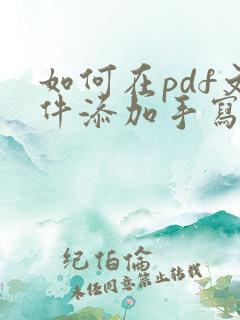 如何在pdf文
件添加手寫
纪伯倫
未经同意禁止转载